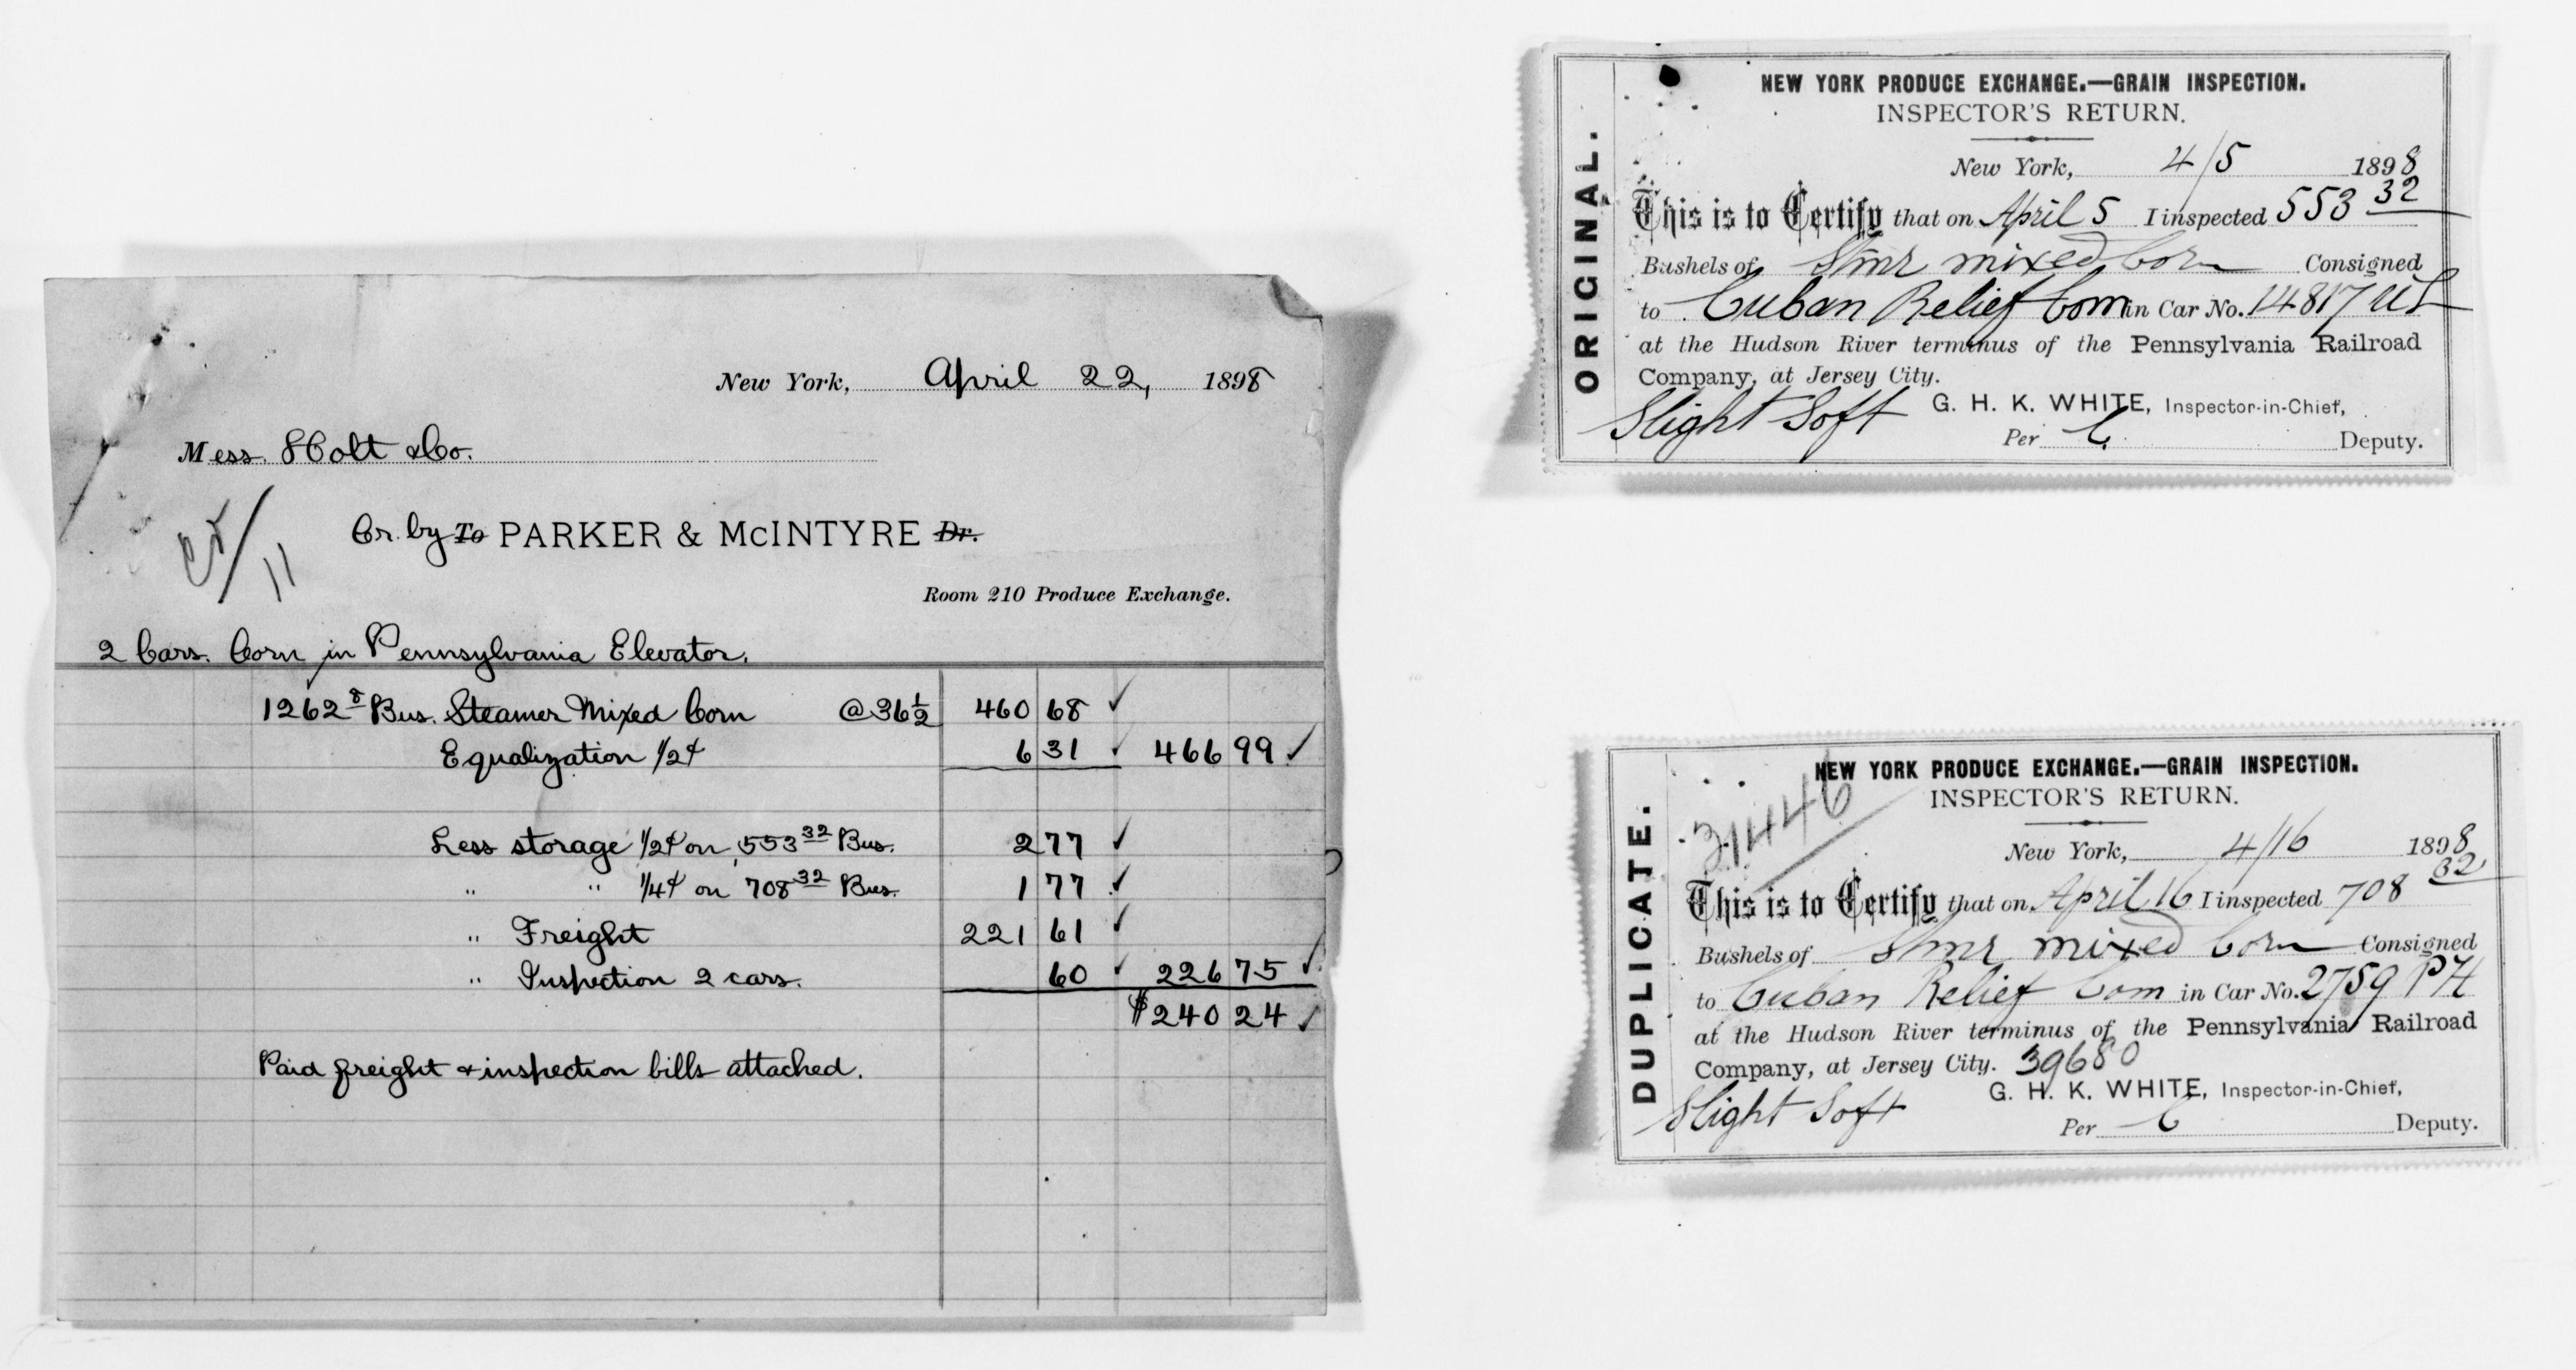 New York, April 22, 1898
Mess. Holt & Co.
Cr. by To PARKER & McINTYRE Dr.
11
Room 210 Produce Exchange.
2 Cars. Corn in Pennsylvania Elevator.
1262 8 Bus. Steamer Mixed Corn @ 36 1/2 460 68 ✓
Equalization 1/2¢ 6 31 ✓ 466 99 ✓
Less storage 1/2¢ on 553 32 Bus. 2 77 ✓
" " 1/4¢ on 708 32 Bus. 1 77 ✓
" Freight 221 61 ✓
" Inspection 2 cars. 60 ✓ 226 75 ✓
$240 24 ✓
Paid freight & inspection bills attached.
ORIGINAL.
NEW YORK PRODUCE EXCHANGE.—GRAIN INSPECTION.
INSPECTOR'S RETURN.
New York, 4/5 1898
This is to Certify that on April 5 I inspected 553 32
Bushels of Stmr mixed Corn Consigned
to Cuban Relief Com in Car No. 14817 UL
at the Hudson River terminus of the Pennsylvania Railroad
Company, at Jersey City.
Slight Soft G. H. K. WHITE, Inspector-in-Chief,
Per C Deputy.
DUPLICATE.
31446
NEW YORK PRODUCE EXCHANGE.—GRAIN INSPECTION.
INSPECTOR'S RETURN.
New York, 4/16 1898
This is to Certify that on April 16 I inspected 708 32
Bushels of Stmr mixed Corn Consigned
to Cuban Relief Com in Car No. 2759 PH
at the Hudson River terminus of the Pennsylvania Railroad
Company, at Jersey City. 39680
G. H. K. WHITE, Inspector-in-Chief,
Slight Soft Per C Deputy.